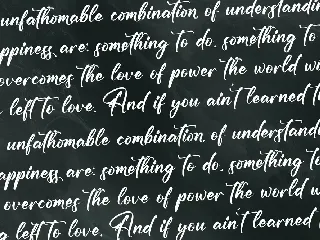 unfathomable combination of understanding
appiness are: something to do, something to
overcomes the love of power the world wi
left to love. And if you ain't learned t
unfathomable combination of understandi
appiness are: something to do, something to
overcomes the love of power the world w
g left to love. And if you ain't learned